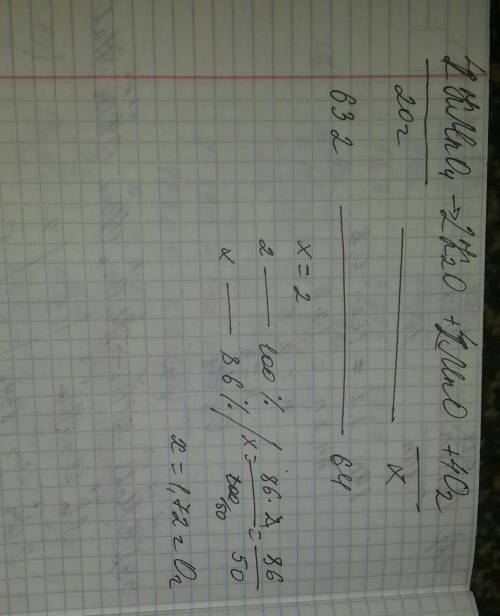 4KMnO₄ → 2K2O + 4MnO + 4O₂
20г ——— x
632 ——— 64
x = 2
2 — 100%
x — 86% / x = 86·2/100 50 = 86/50
x = 1,72 г O₂